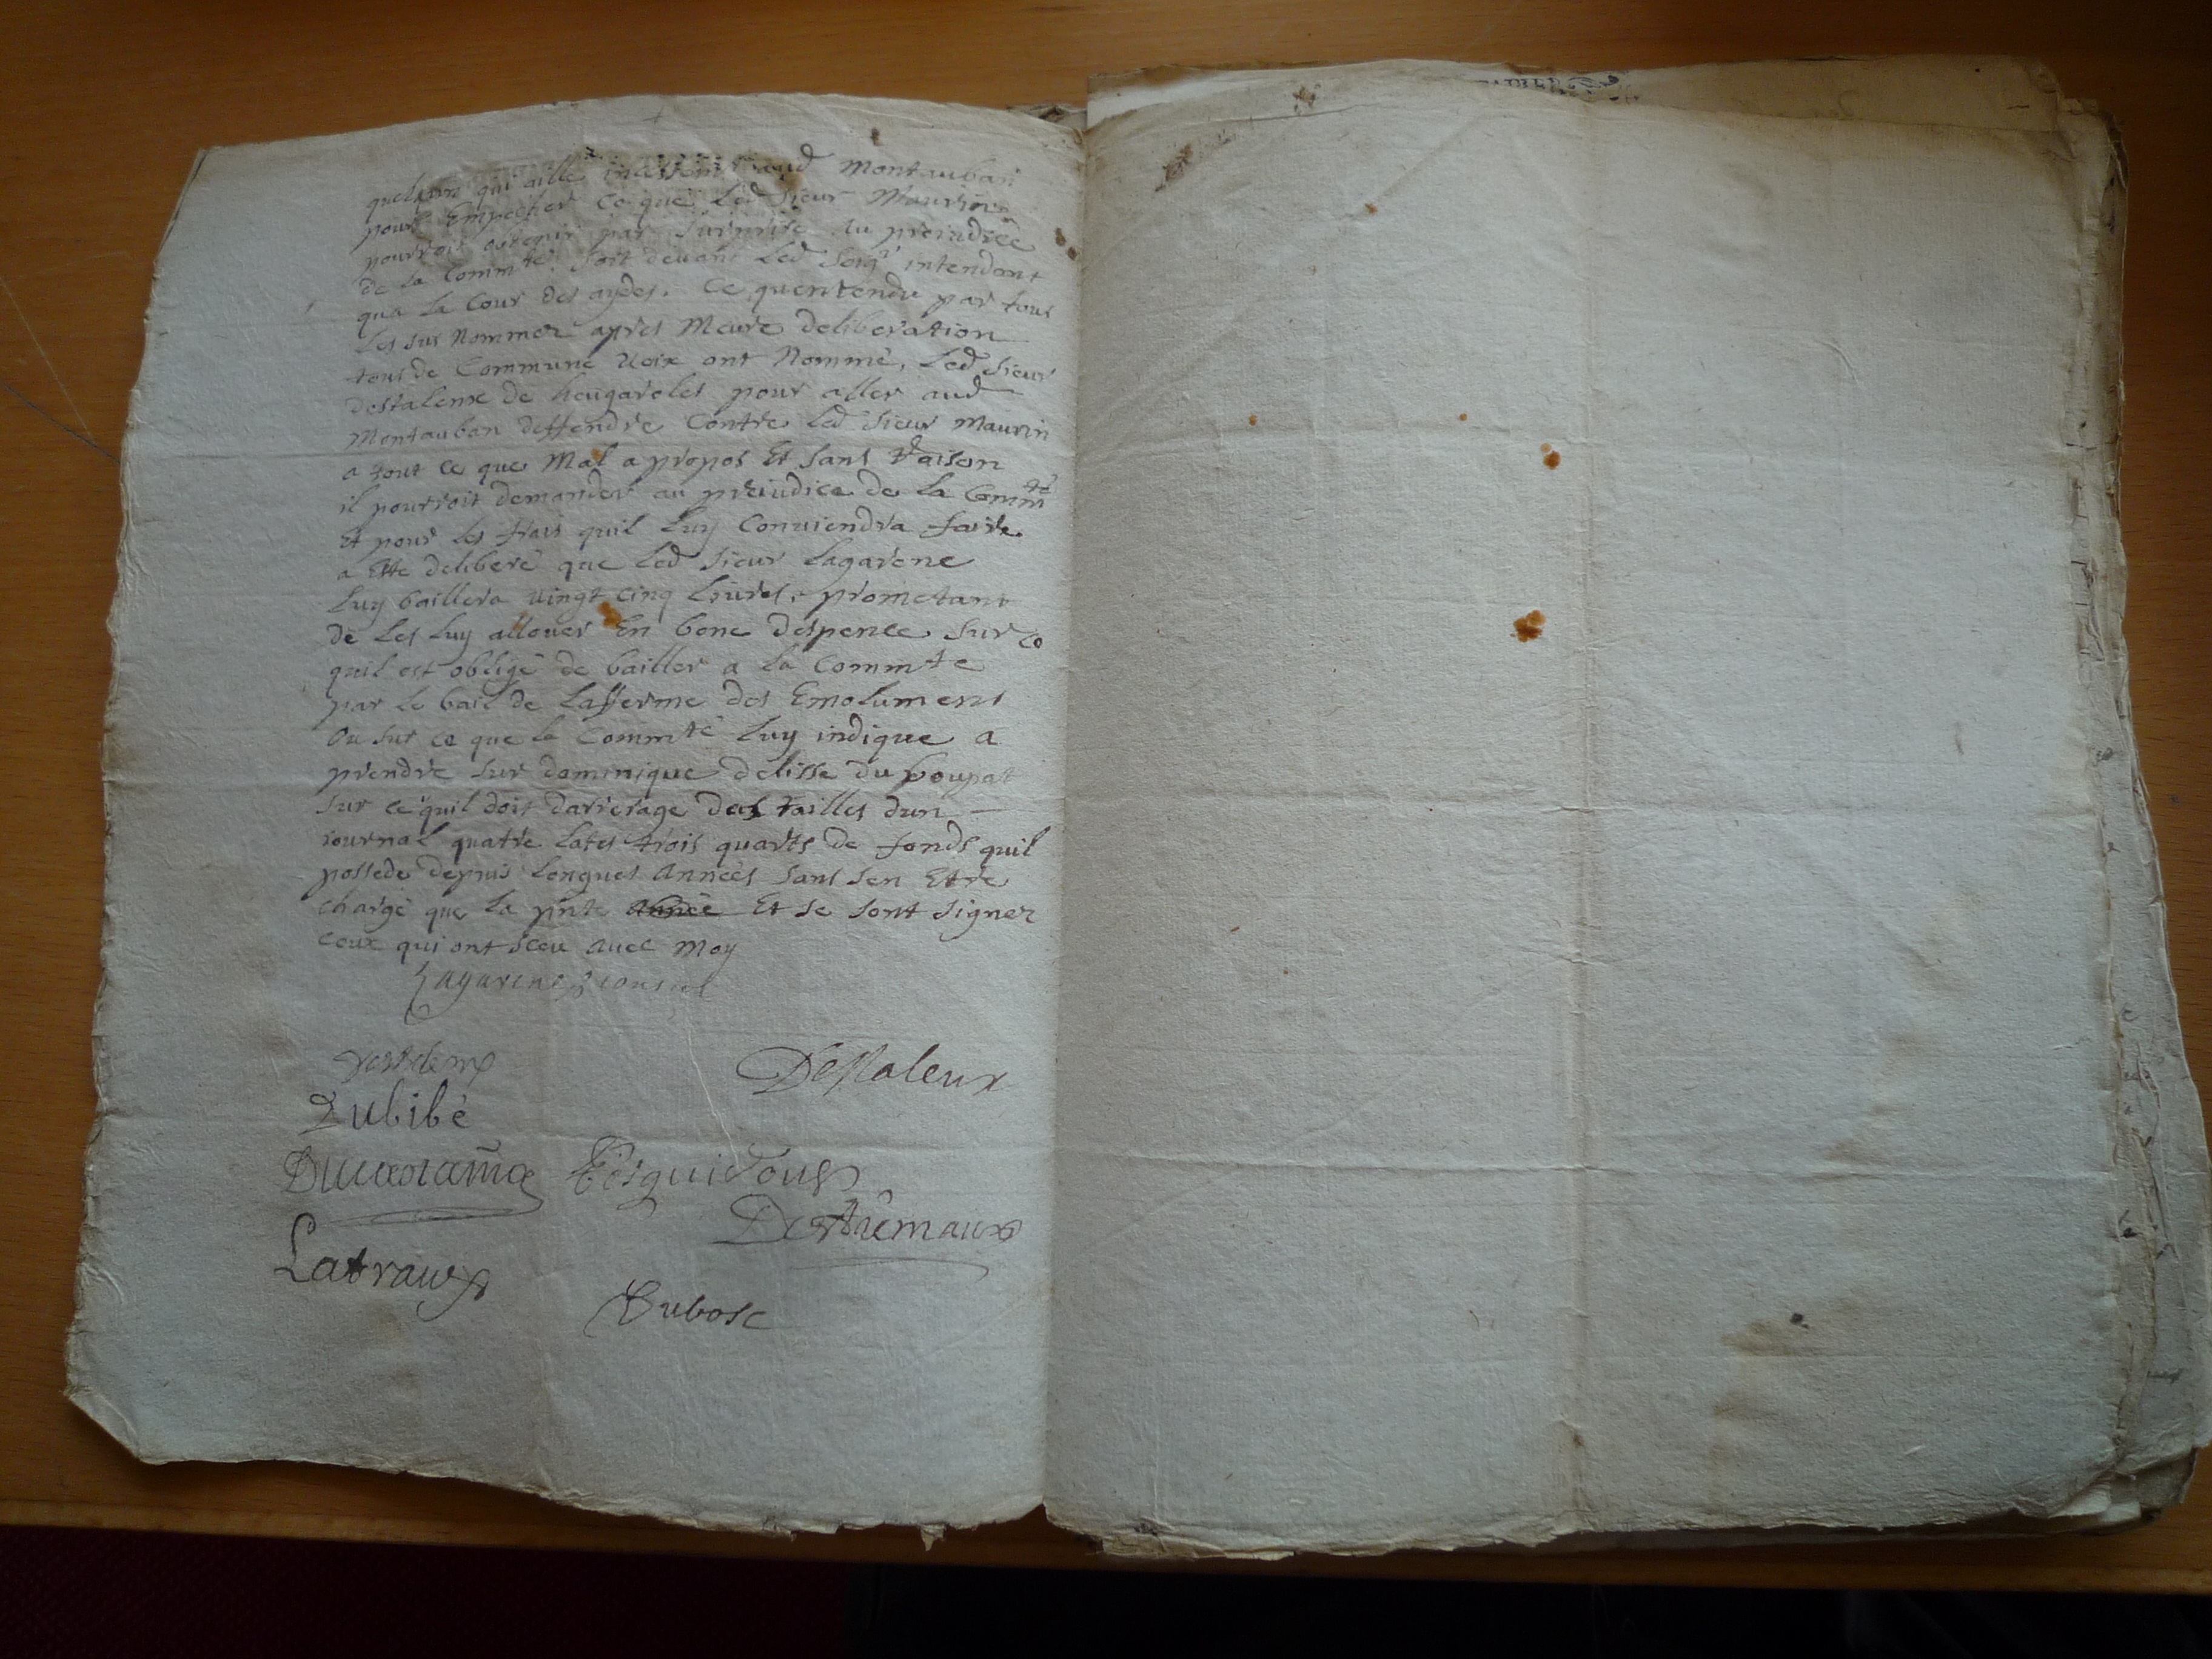 quelqun qui aille incessemt aud Montauban
pour Empecher ce que led sieur Maurin
pourroit obtenir par surprise au preiudice
de la Commté. soit devant led seigr intendant
qua la Cour des aydes. Ce quentendu par tous
les sus Nommez apres Meure deliberation
tous de Commune Voix ont Nommé, led sieur
destaleme de heugaroles pour aller aud
Montauban deffendre Contre led sieur Maurin
a tout ce que Mal a propos Et sans Raison
il pourroit demander au preiudice de la Commté
Et pour les frais quil luy Conviendra faire
a Ette deliberé que led sieur Lagarene
luy baillera vingt cinq livres, prometant
de les luy allouer En bone despence sur ce
quil est obligé de bailler a la Commte
par le bail de Lafferme des Emolumens
Ou sur ce que la Commté luy indique a
prendre sur dominique delisse du poupat
sur ce quil doit darrerage des tailles dun
iournal quatre lates trois quarts de fonds quil
possede depuis longues Années sans sen Etre
chargé que la pnte Année Et se sont signez
ceux qui ont sceu avec Moy
Lagarene consul
Destaleux
Dubibé
Tesquidous
Latraux
Dubosc